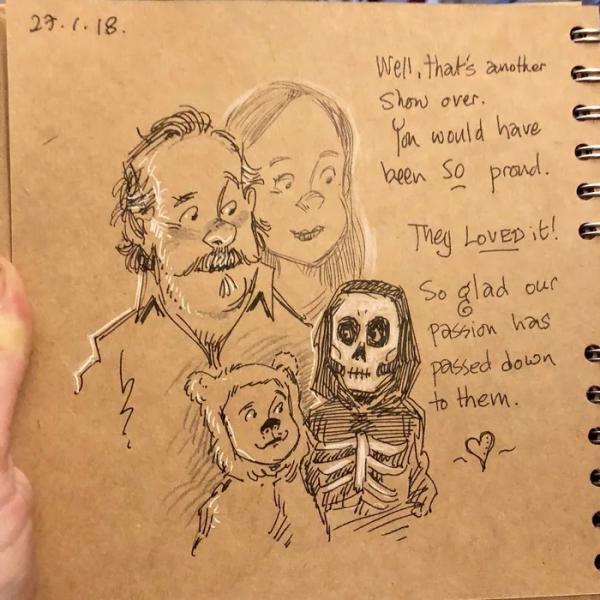 27.1.18.
Well, that's another
show over.
You would have
been SO proud.
They LOVED it!
So glad our
passion has
passed down
to them.